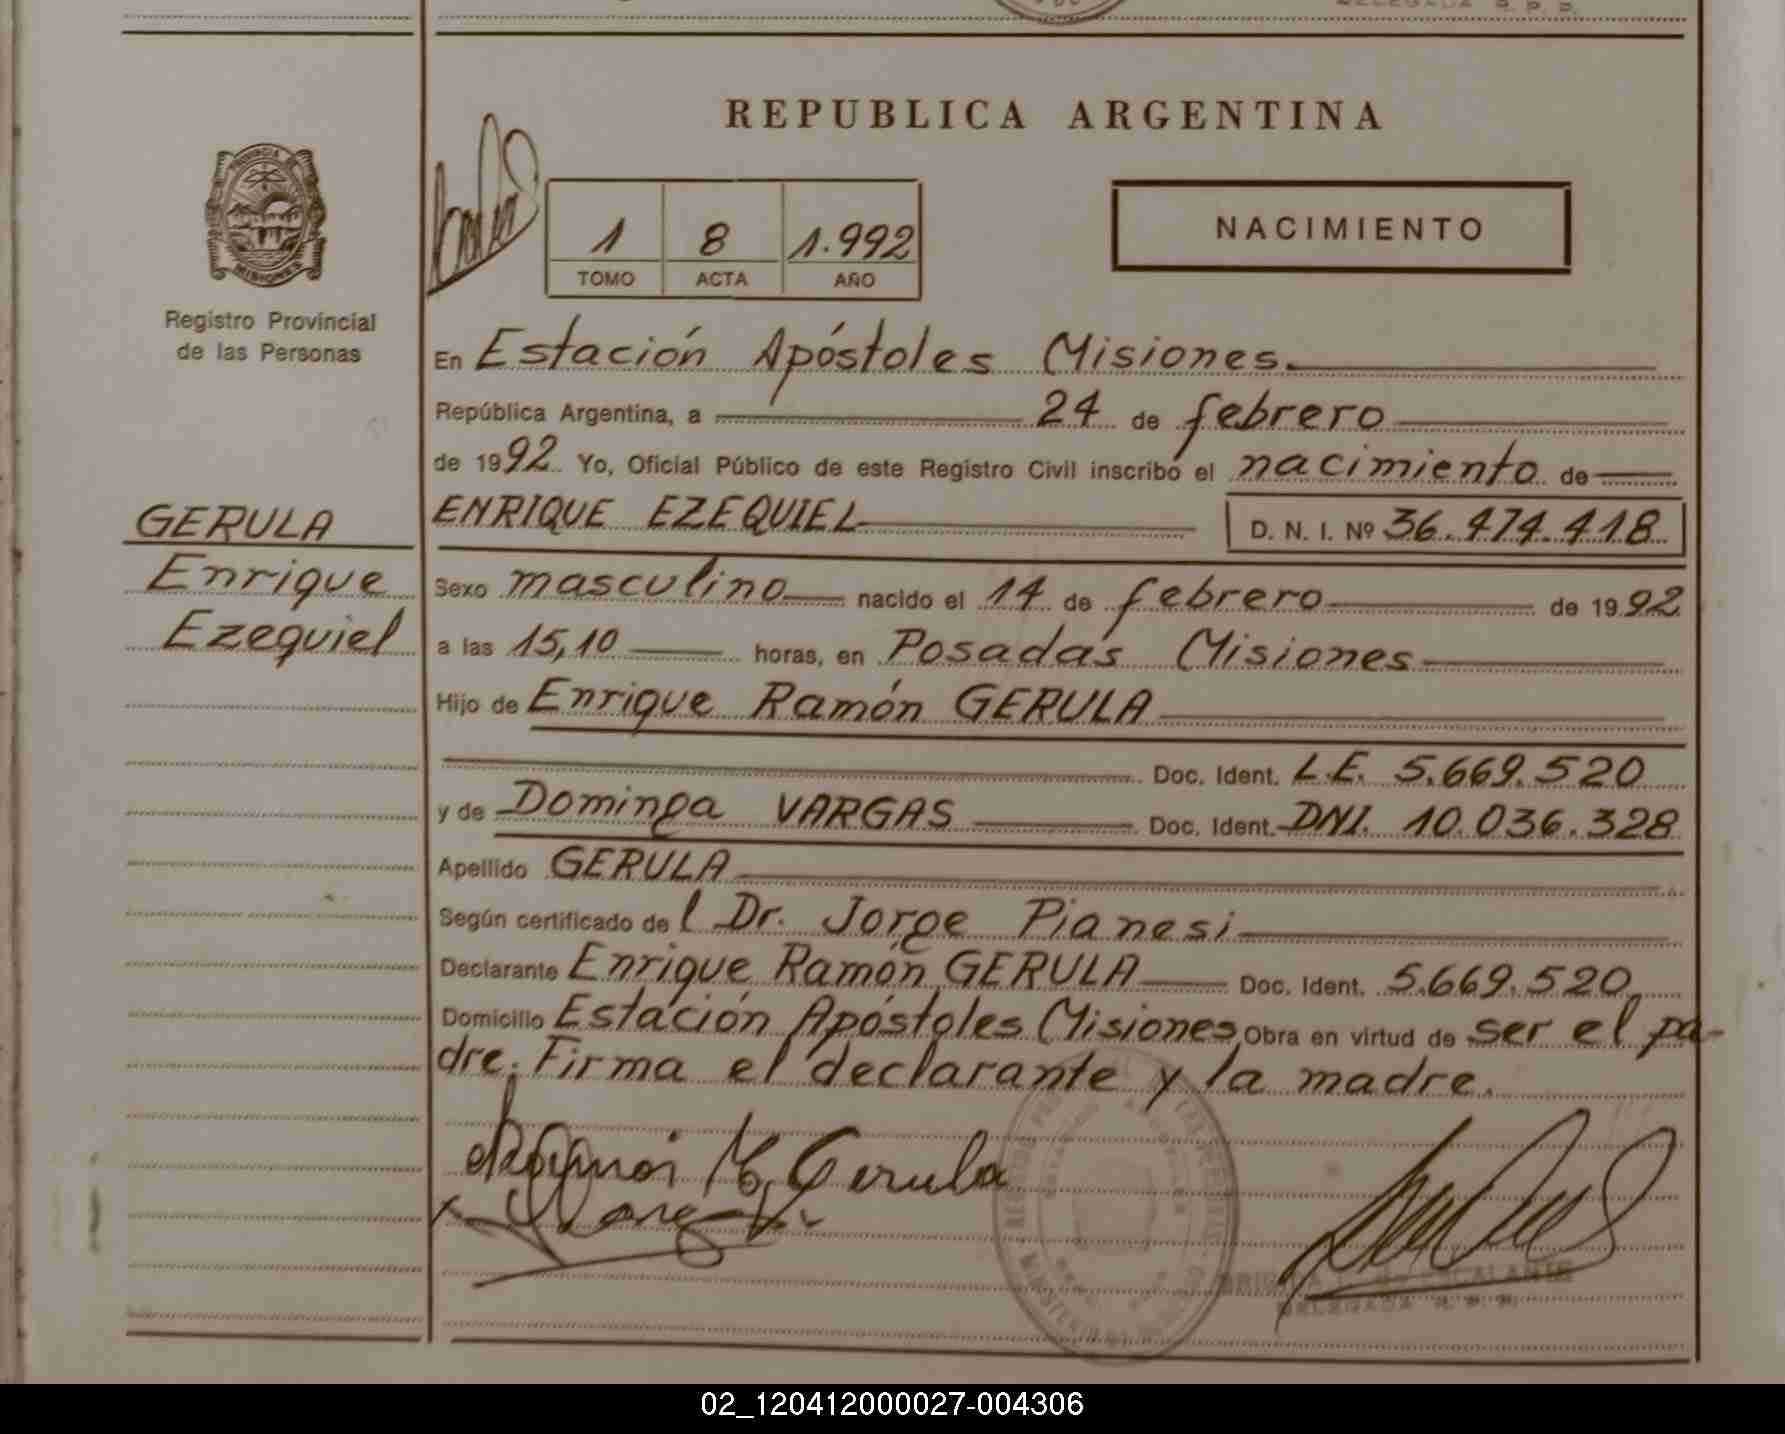 REPUBLICA ARGENTINA
PROVINCIA DE
MISIONES
Registro Provincial
de las Personas
1 8 1.992
TOMO ACTA AÑO
NACIMIENTO
En Estación Apóstoles Misiones.
República Argentina, a 24 de febrero
de 1992 Yo, Oficial Público de este Registro Civil inscribo el nacimiento de
GERULA
Enrique
Ezequiel
ENRIQUE EZEQUIEL D. N. I. Nº 36.474.418
Sexo masculino nacido el 14 de febrero de 1992
a las 15,10 horas, en Posadas Misiones
Hijo de Enrique Ramón GERULA
Doc. Ident. L.E. 5.669.520
y de Dominga VARGAS Doc. Ident. DNI. 10.036.328
Apellido GERULA
Según certificado de l Dr. Jorge Pianesi
Declarante Enrique Ramón GERULA Doc. Ident. 5.669.520
Domicilio Estación Apóstoles Misiones Obra en virtud de ser el pa-
dre. Firma el declarante y la madre.
Gerula
DELEGADA R. P. P.
02_120412000027-004306